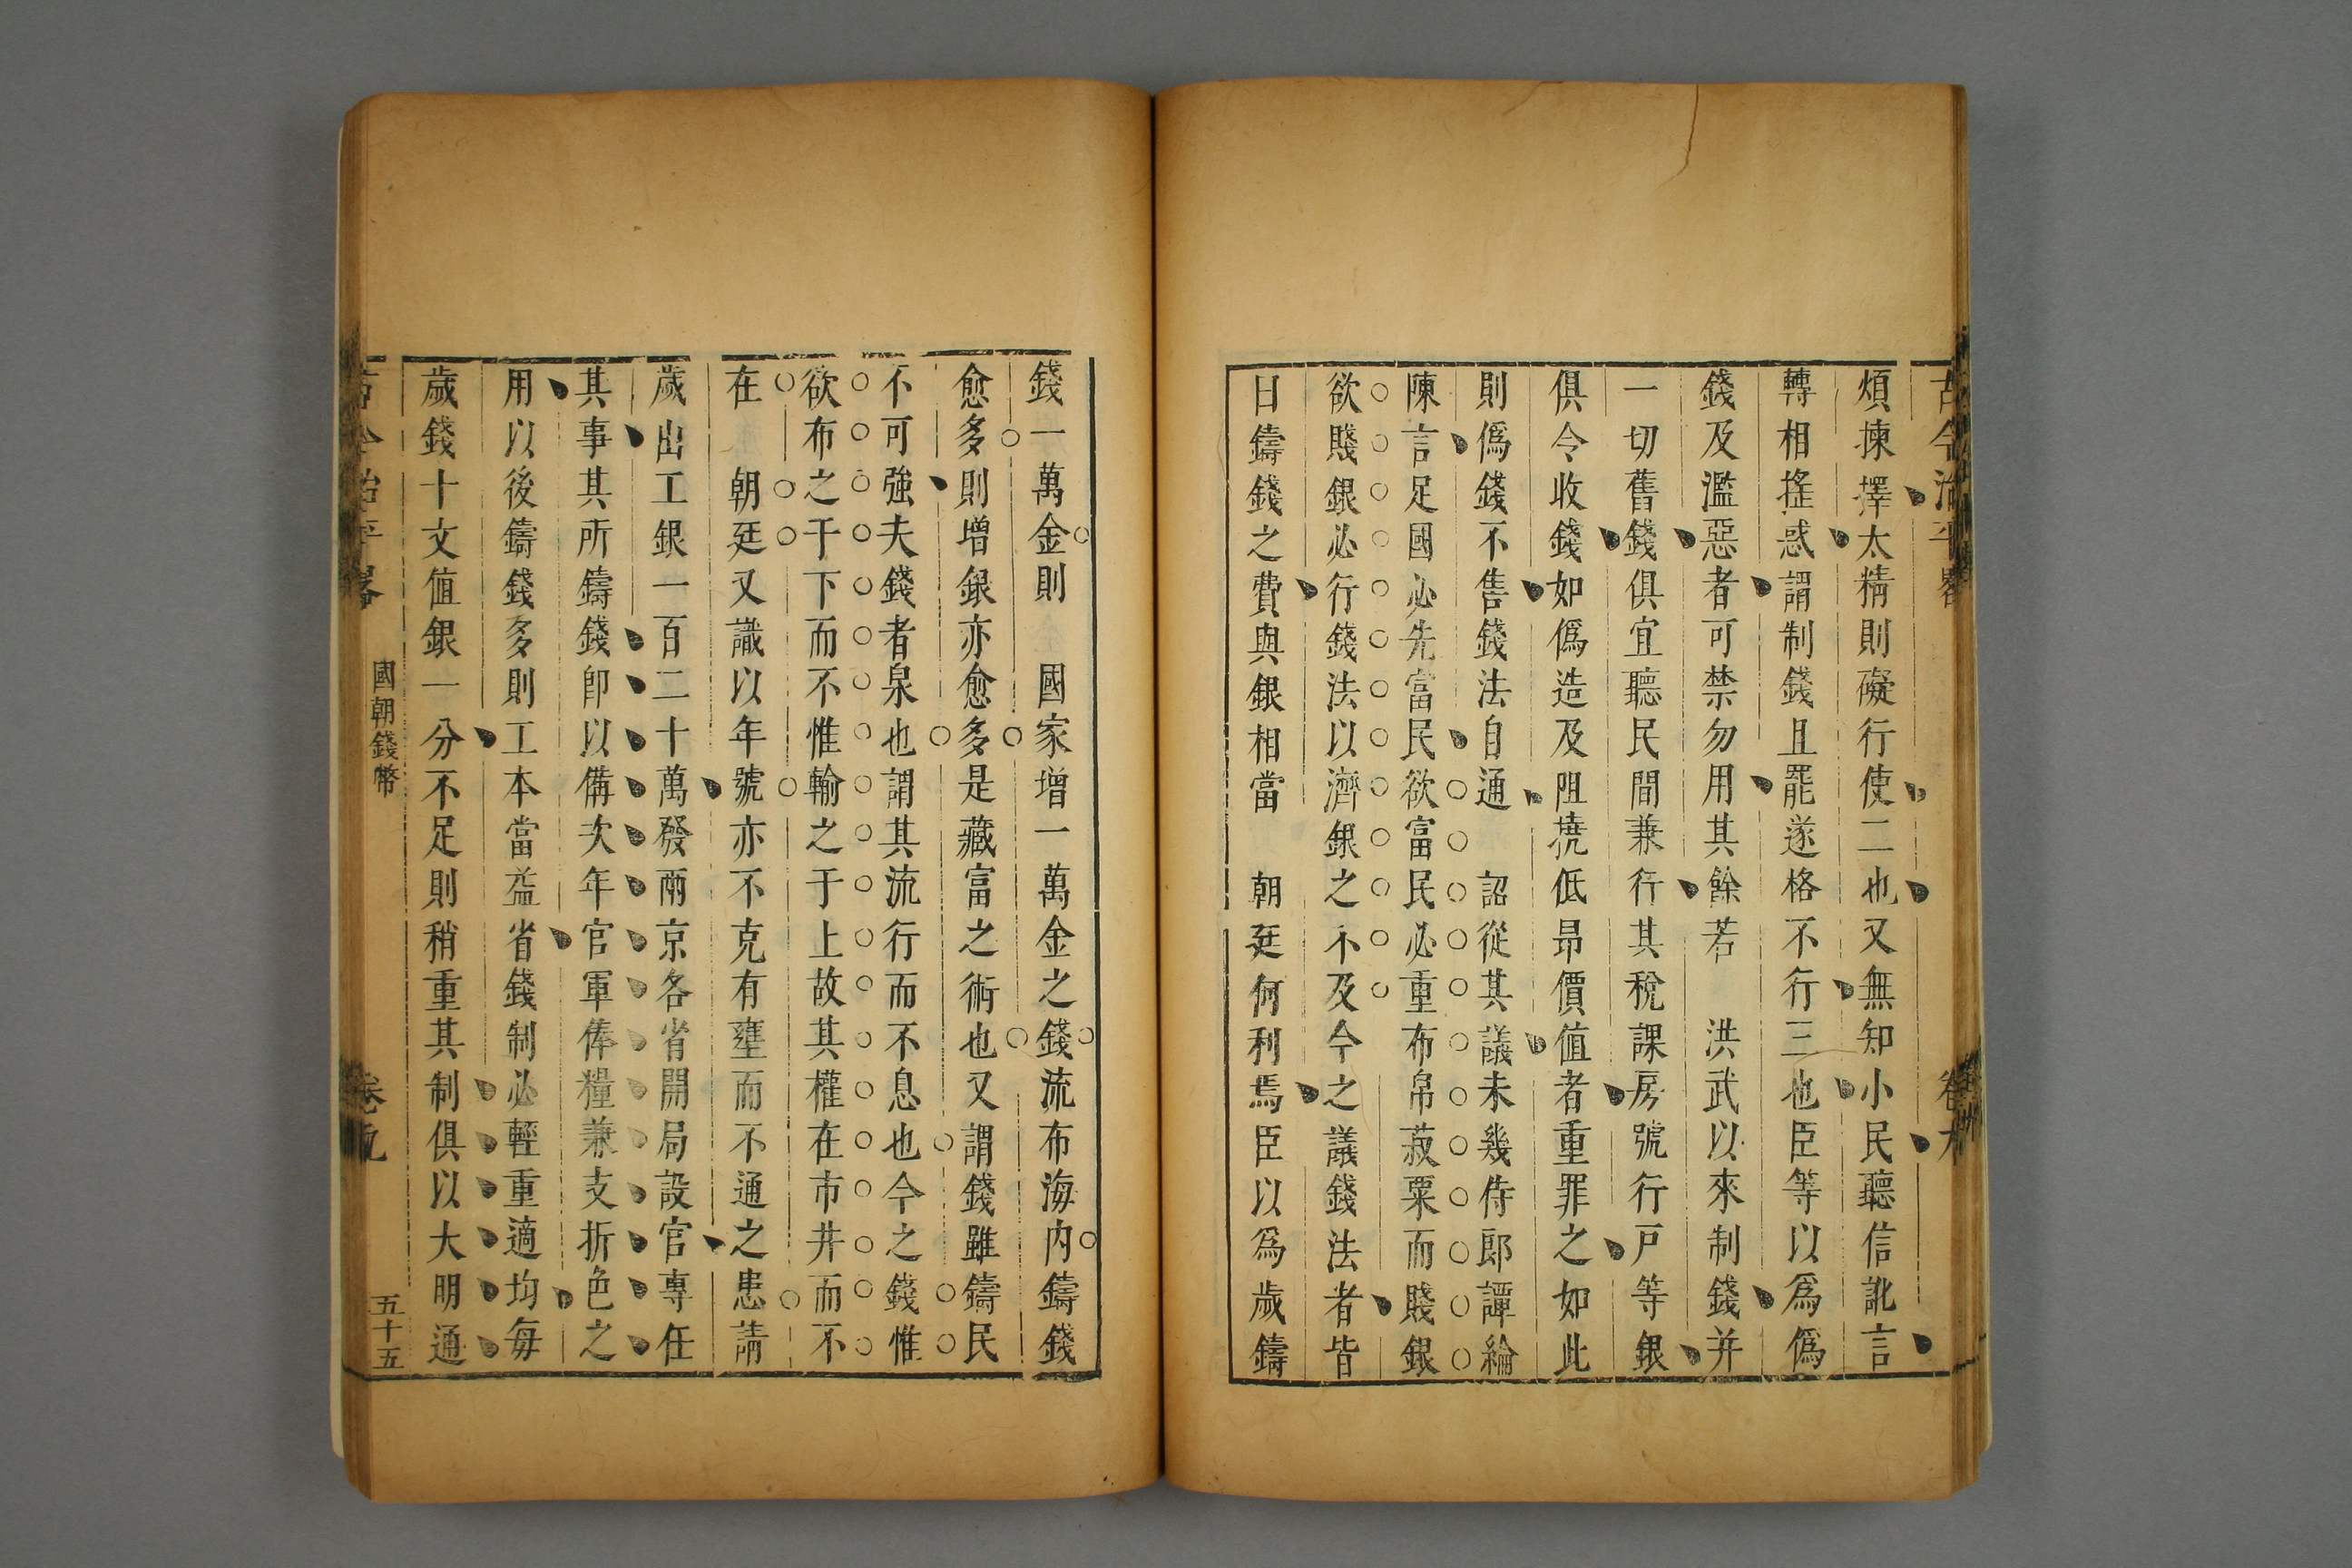 古今治平畧
卷
煩揀擇太精則礙行使二也又無知小民聽信訛言
轉相搖惑謂制錢且罷遂格不行三也臣等以爲僞
錢及濫惡者可禁勿用其餘若 洪武以來制錢并
一切舊錢俱宜聽民間兼行其稅課房號行戸等銀
俱令收錢如僞造及阻撓低昂價值者重罪之如此
則僞錢不售錢法自通 詔從其議未幾侍郎譚綸
陳言足國必先富民欲富民必重布帛菽粟而賤銀
欲賤銀必行錢法以濟銀之不及今之議錢法者皆
日鑄錢之費與銀相當 朝廷何利焉臣以爲歲鑄
錢一萬金則 國家增一萬金之錢流布海内鑄錢
愈多則增銀亦愈多是藏富之術也又謂錢雖鑄民
不可強夫錢者泉也謂其流行而不息也今之錢惟
欲布之于下而不惟輸之于上故其權在市井而不
在 朝廷又識以年號亦不克有壅而不通之患請
歲出工銀一百二十萬發兩京各省開局設官專任
其事其所鑄錢卽以備次年官軍俸糧兼支折色之
用以後鑄錢多則工本當益省錢制必輕重適均每
歲錢十文值銀一分不足則稍重其制俱以大明通
古今治平畧
國朝錢幣
卷九
五十五